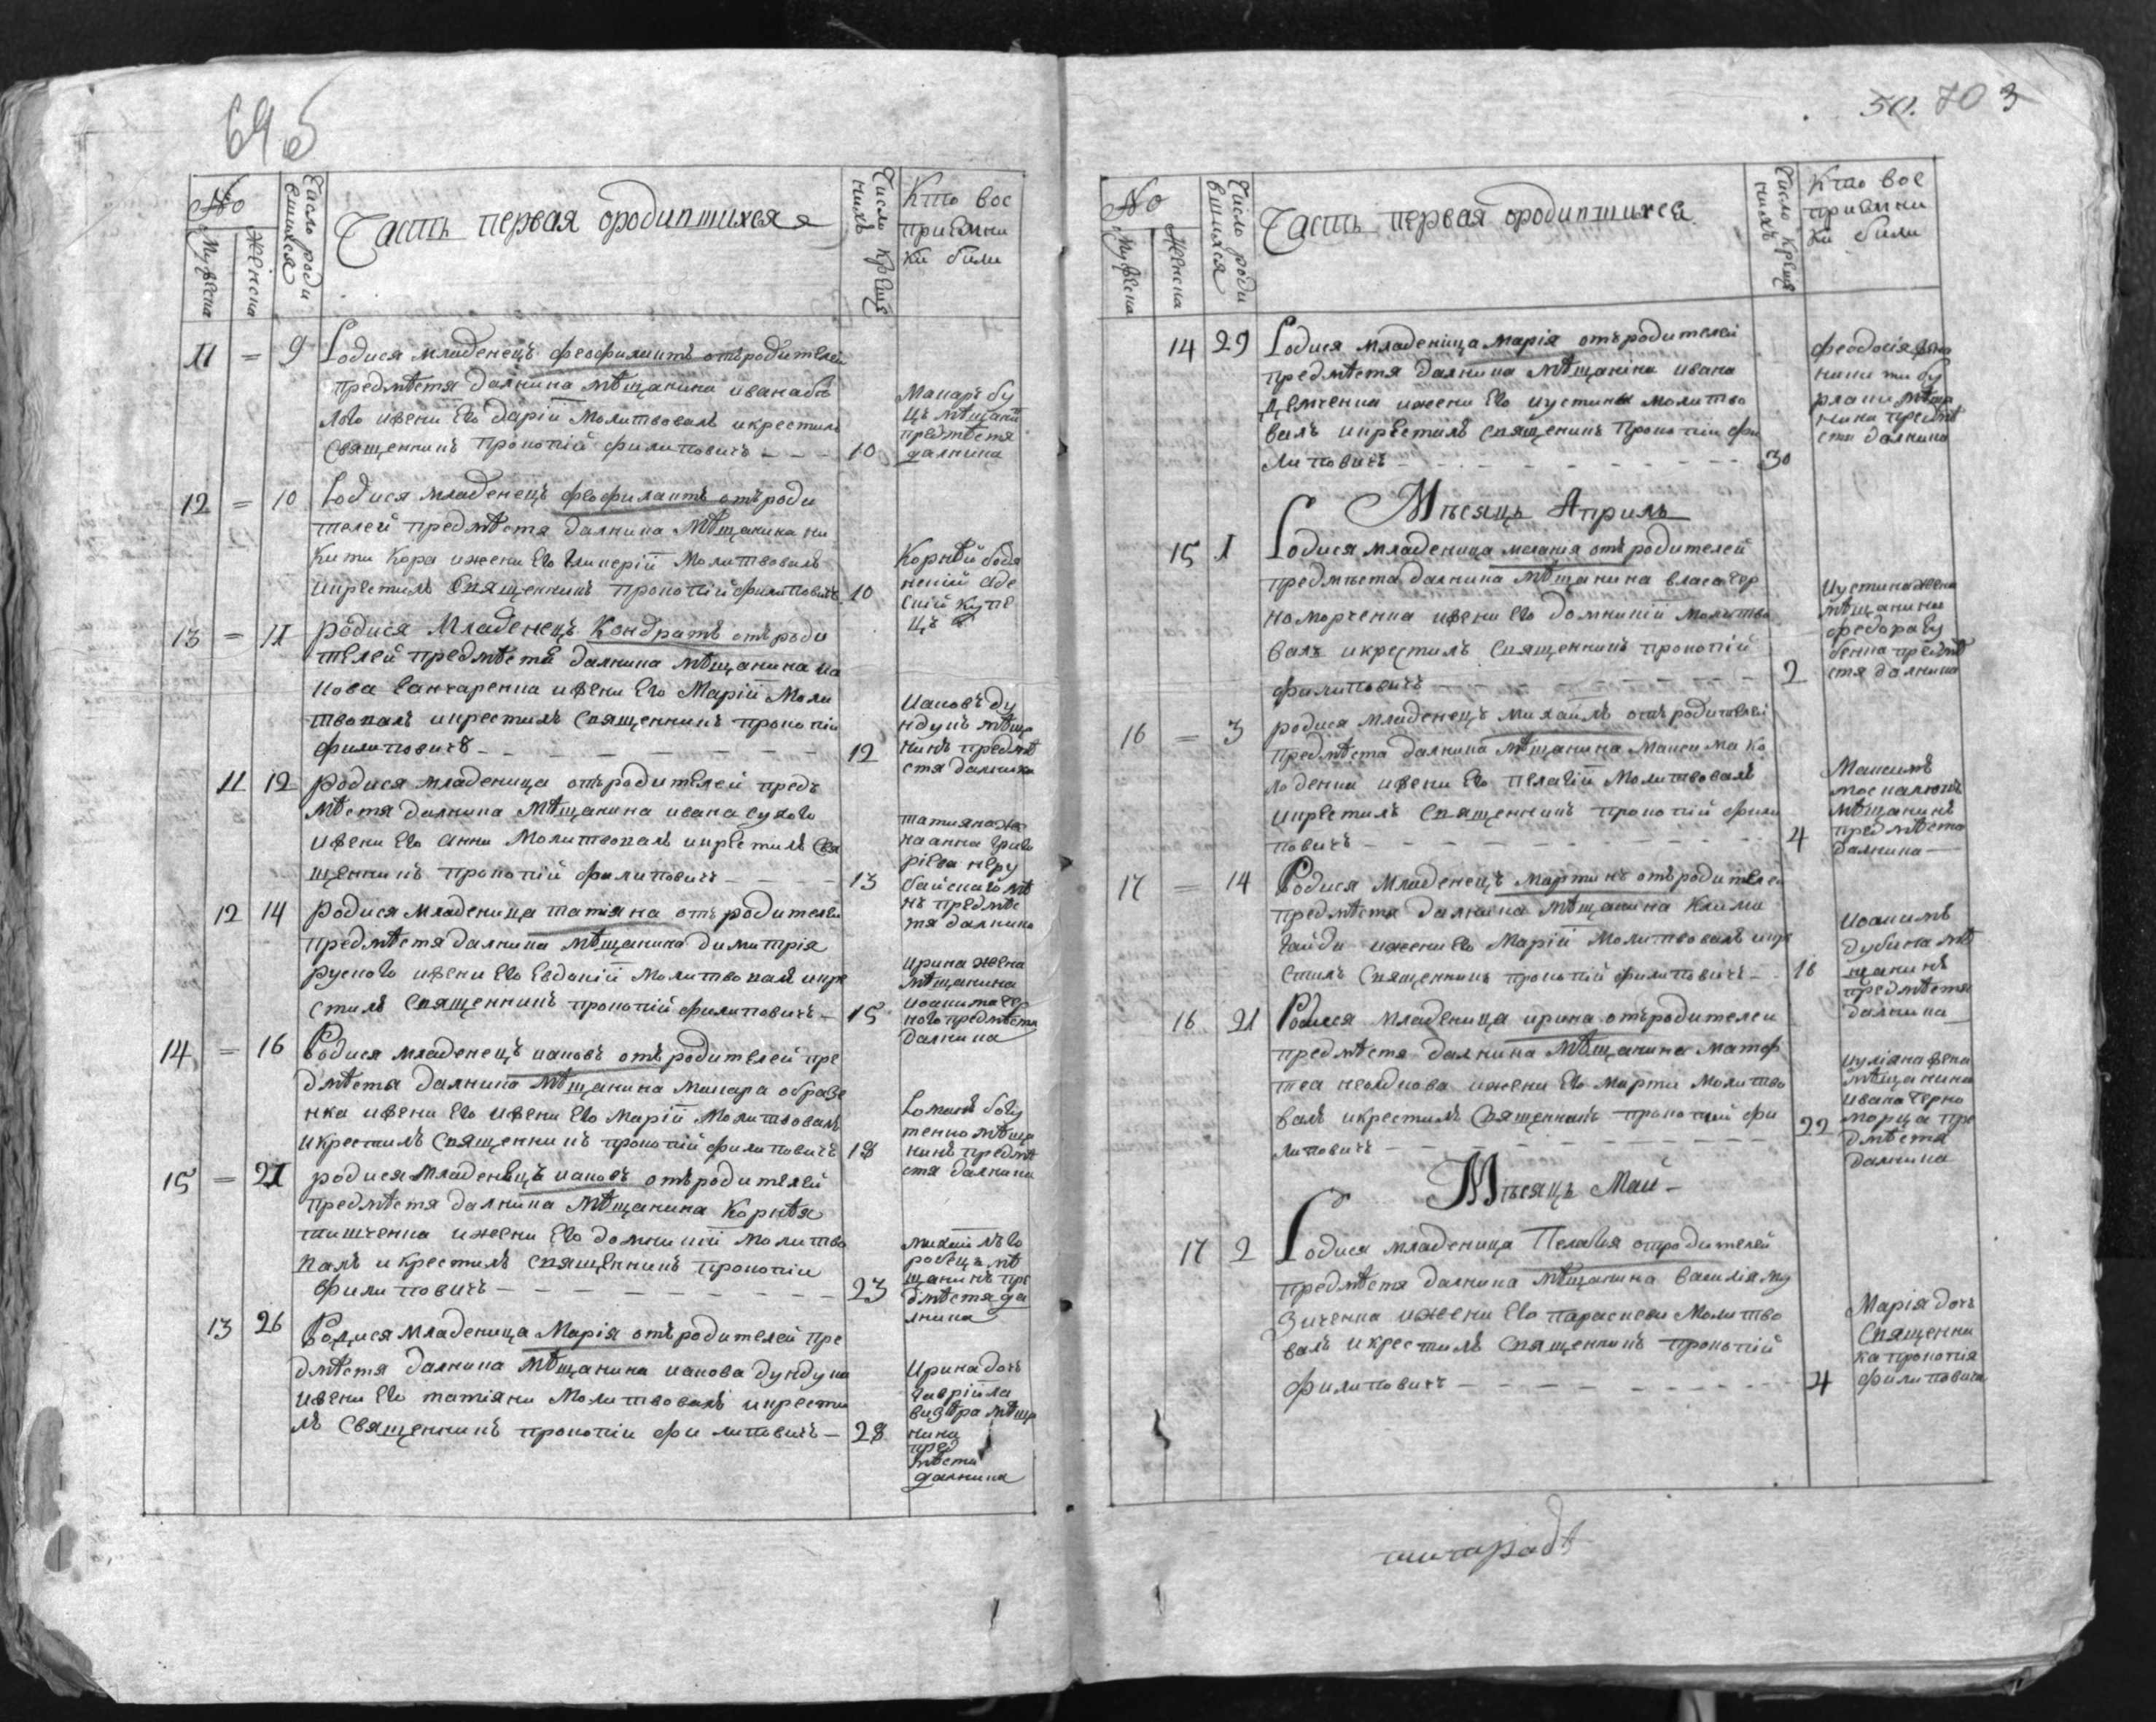 69 б
№
Мужеска
Женска
Число роди
вшихся
Часть первая ородившихся
Число креще
нихъ
Кто вос
приемни
ки били
11 = 9 Родися младенецъ феофилактъ отъродителей
предмѣстя далника мѣщанина ивана
ижени его дарїи молитвовалъ икрестилъ
Священникъ прокопїй филиповичъ - - - 10
Макаръ бу
цъ мѣщанин
предмѣстя
далника
12 = 10 Родися младенецъ феофилактъ отъроди
телей предмѣстя далника мѣщанина ни
кити кора ижени его гликерїи молитвовалъ
икрестилъ Священникъ прокопїй филиповичъ 10
Корнѣй бодя
нскїй оде
скїй купе
цъ
13 = 11 родися младенецъ Кондратъ отъроди
телей предмѣстя далника мѣщанина иа
кова ганчаренка ижени его Марїи моли
твовалъ икрестилъ Священникъ прокопїй
филиповичъ - - - 12
Иаковъ ду
ндукъ мѣща
нинъ предмѣ
стя далника
11 12 родися младеница отъродителей пред
мѣстя далника мѣщанина ивана сухого
ижени его анни молитвовалъ икрестилъ Свя
щенникъ прокопїй филиповичъ - - - 13
татияна
на анна григо
рїева
предмѣс
тя далника
12 14 родися младеница татїяна отъ родителей
предмѣстя далника мѣщанина димитрїя
руского ижени его евдокїи молитвовалъ икре
стилъ Священникъ прокопїй филиповичъ - 15
ирина жена
мѣщанина
иоакима чер
ного предмѣстя
далника
14 = 16 Родися младенецъ иаковъ отъ родителей пре
дмѣстя далника мѣщанина макара образе
нка ижени его ижени его Марїи молитвовалъ
икрестилъ Священникъ прокопїй филиповичъ 18
Романъ богу
тенко мѣща
нинъ предмѣ
стя далника
15 = 21 родися младенецъ иаковъ отъродителей
предмѣстя далника мѣщанина Корнѣя
тишченка ижени его домникїи молитво
валъ икрестилъ Священникъ прокопїи
филиповичъ - - - 23
михаилъ го
робецъ мѣ
щанинъ пре
дмѣстя да
лника
13 26 Родися младеница Марїя отъродителей пре
дмѣстя далника мѣщанина иакова дундука
ижени его татїяни молитвовалъ икрести
лъ Священникъ прокопїи филиповичъ - 28
Ирина доч
гаврїила
визѣра мѣща
нина
пред
мѣстя
далника
50. 70 3
№
Мужеска
Женска
Число роди
вшихся
Часть первая ородившихся
Число креще
нихъ
Кто вос
приемни
ки били
14 29 Родися младеница Марїя отъродителей
предмѣстя далника мѣщанїна ивана
демченка ижени его иустини молитво
валъ икрестилъ Священникъ прокопїи фи
липовичъ - - - 30
феодосїя жена
никити бу
рлаки мѣща
нина предмѣ
стя далника
Мѣсяцъ Априль
15 1 Родися младеница мелания отъродителей
предмѣста далника мѣщанина власа чер
номорченка ижени его домникїи молитво
валъ икрестилъ Священникъ прокопїй
филиповичъ - - - 2
Иустина жена
мѣщанина
федора бу
бенка предмѣ
стя далника
16 = 3 родися младенецъ михаилъ отъ родителей
предмѣста далника мѣщанина максима ко
лоденка ижени его пелагїи молитвовалъ
икрестилъ Священникъ прокопїй фили
повичъ - - - 4
Максимъ
москалюкъ
мѣщанинъ
предмѣста
далника
17 = 14 Родися младенецъ мартинъ отъродителей
предмѣстя далника мѣщанина клими
гайди ижени его Марїи молитвовалъ икре
стилъ Священникъ прокопїй филиповичъ - 16
Иоакимъ
дубина мѣ
щанинъ
предмѣстя
далника
16 21 Родися младеница ирина отъродителей
предмѣстя далника мѣщанина матф
теа ижени его марти молитво
валъ икрестилъ Священникъ прокопїй фи
липовичъ - - - 22
Иулїяна жена
мѣщанина
ивана черно
морца пре
дмѣстя
далника
Мѣсяцъ Май
17 2 Родися младеница Пелагия отродителей
предмѣстя далника мѣщанина василїя му
зиченка ижени его параскеви молитво
валъ икрестилъ Священникъ прокопїй
филиповичъ - - - 4
Марїя доч
Священни
ка прокопїя
филиповича